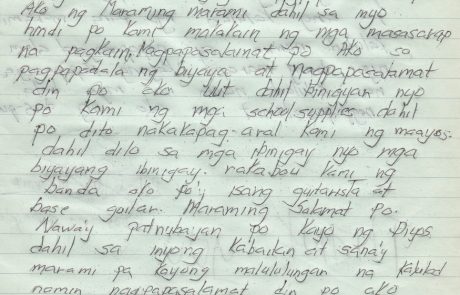 Ako ng Maraming marami dahil sa nyo
hindi po kami makakain ng mga masasarap
na pagkain. Nagpapasalamat po Ako sa
pagpapadala ng biyaya at nagpapasalamat
din po ako dahil binigyan nyo
po kami ng mga school supplies dahil
po dito nakakapag-aral kami ng maayos.
dahil dito sa mga ibinigay nyo mga
biyayang ibinigay. kami ng
banda ako po'y isang gitarista at
base guitar. Maraming Salamat po.
Naway patnubayan po kayo ng Diyos
dahil sa inyong kabaikan at sana'y
marami pa kayong matulungan na
namin nagpapasalamat din po ako